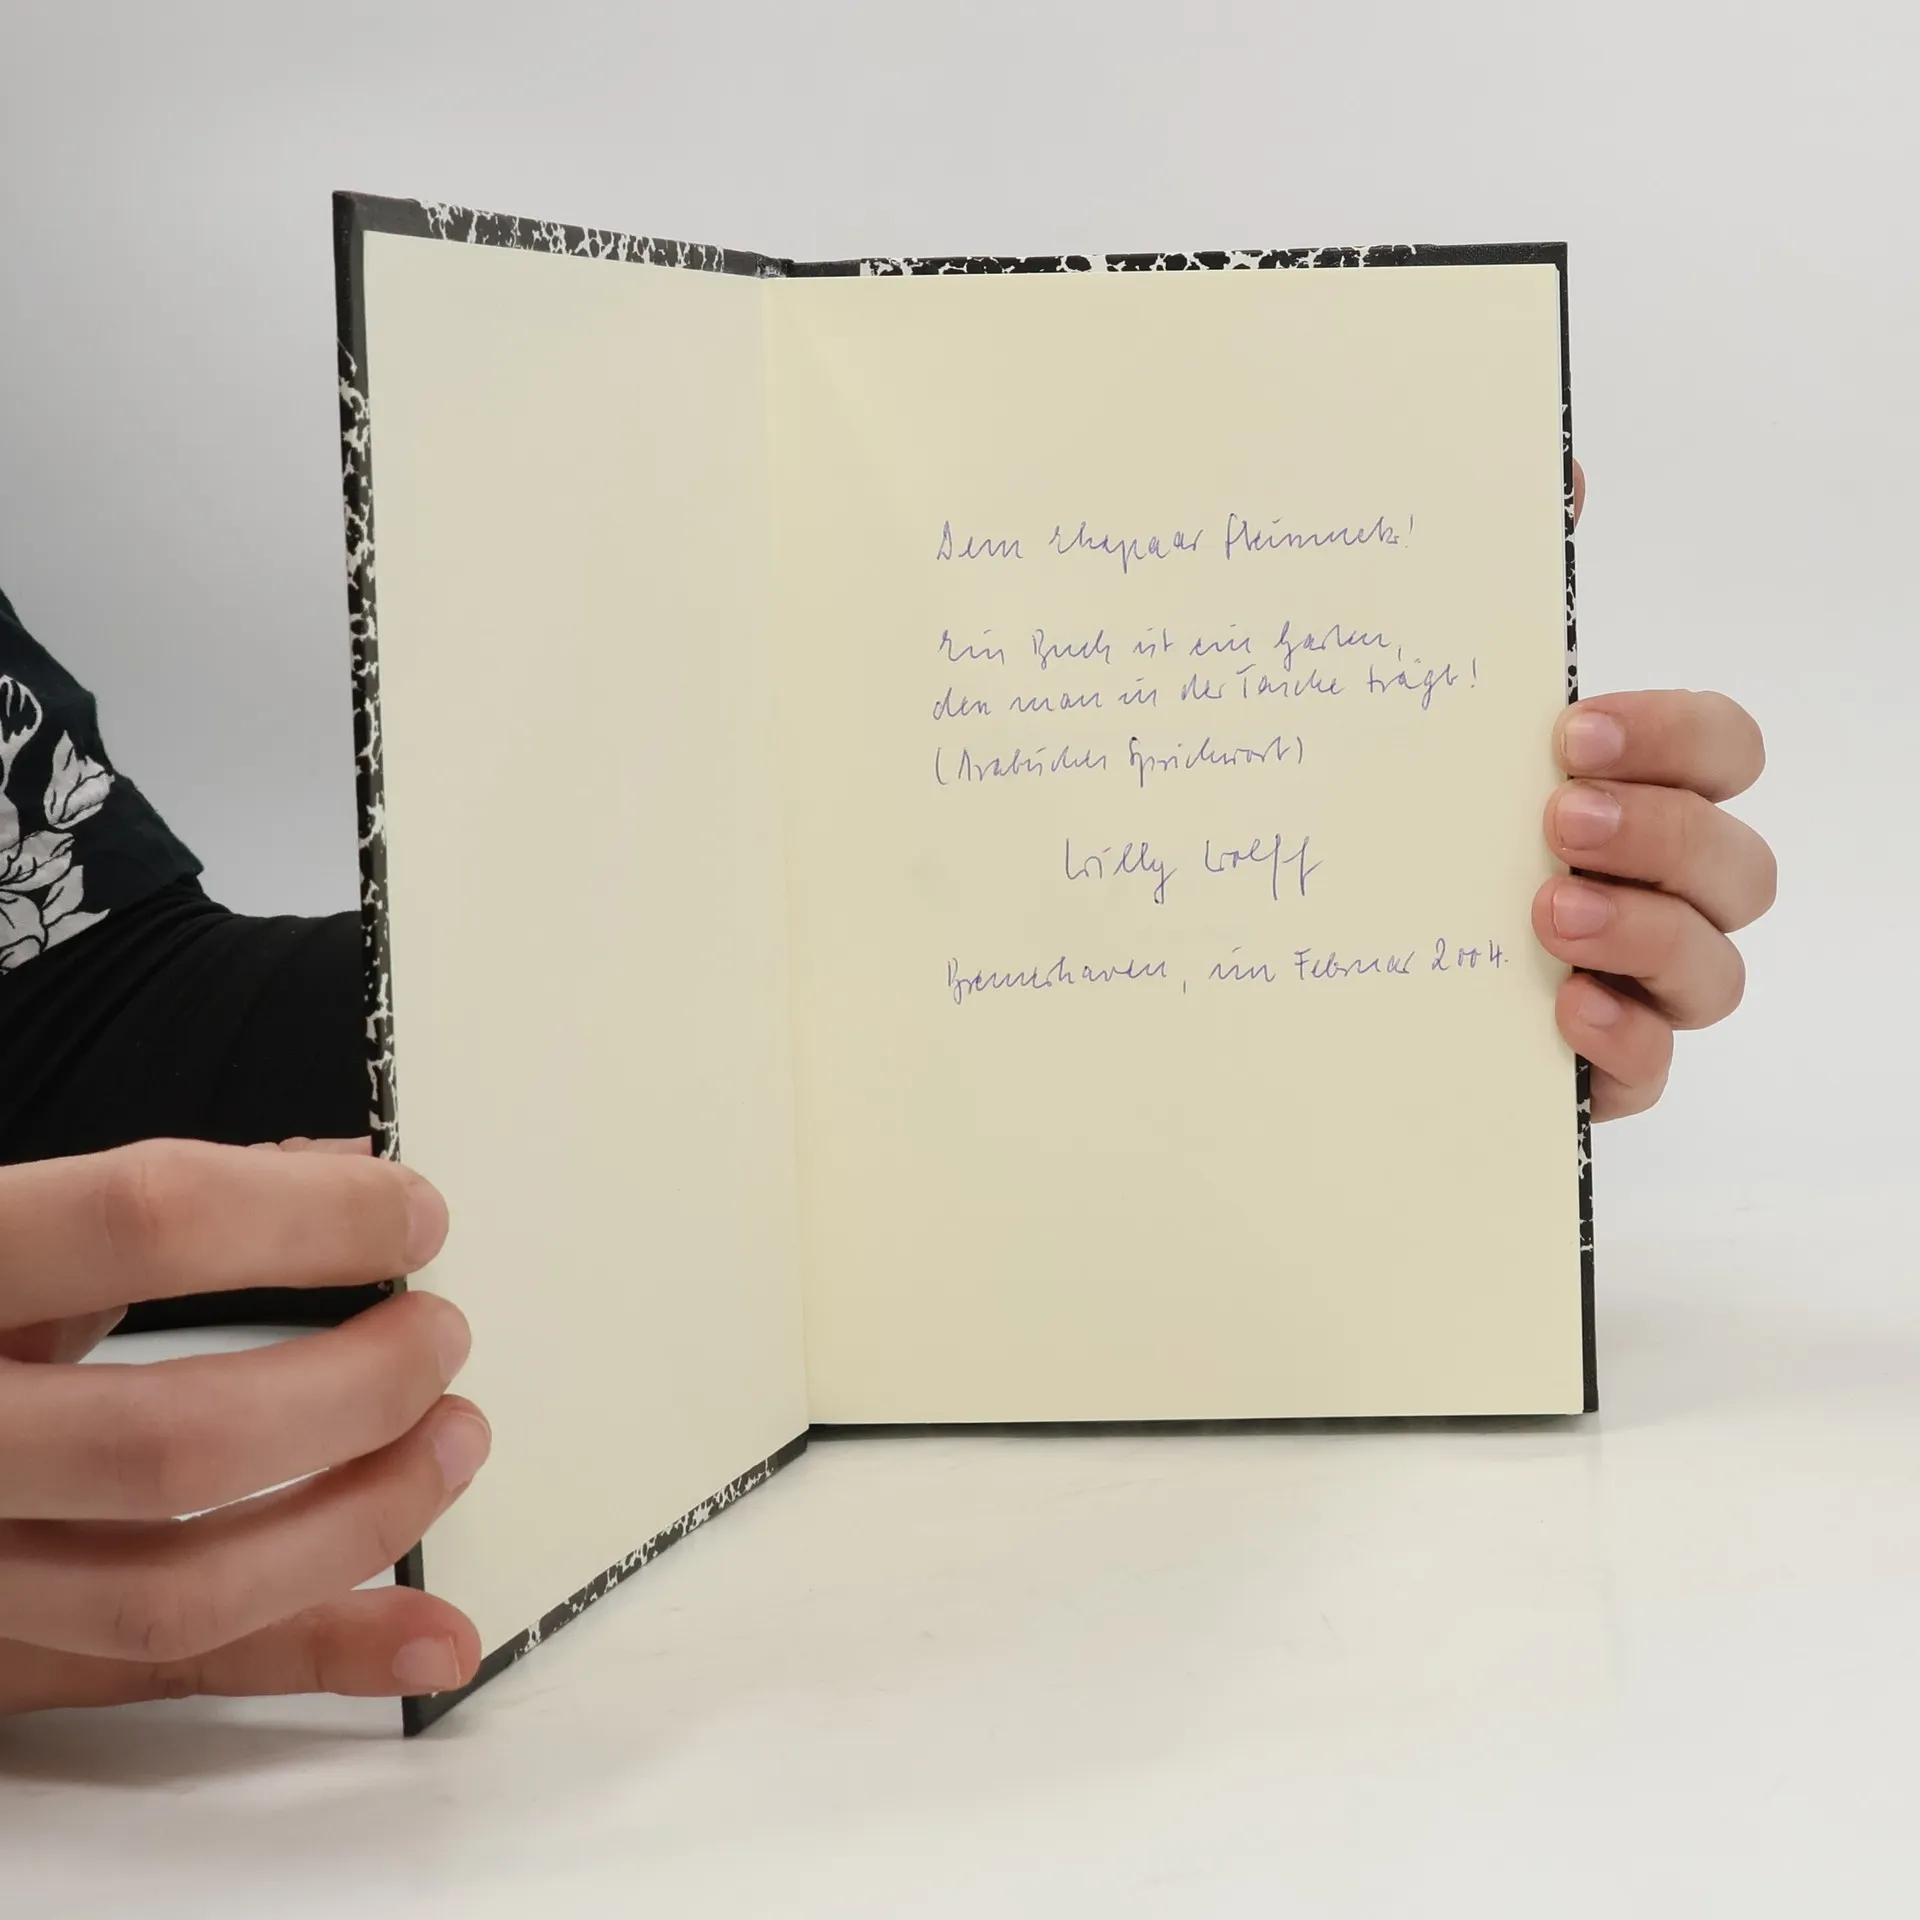 Dem Ehepaar
Ein Buch ist ein Garten,
den man in der Tasche trägt!
(Arabisches Sprichwort)
Willy Wolff
Bremerhaven, im Februar 2004.